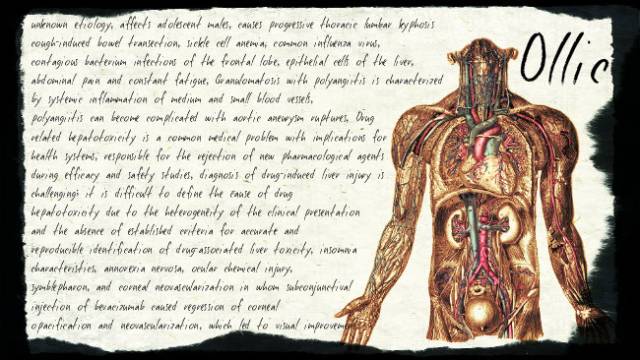 unknown etiology, affects adolescent males, causes progressive thoracic lumbar kyphosis
cough-induced bowel transection, sickle cell anemia, common influenza virus,
contagious bacterium infections of the frontal lobe, epithelial cells of the liver,
abdominal pain and constant fatigue, Granulomatosis with polyangiitis is characterized
by systemic inflammation of medium and small blood vessels,
polyangiitis can become complicated with aortic aneurysm ruptures, Drug
related hepatotoxicity is a common medical problem with implications for
health systems, responsible for the rejection of new pharmacological agents
during efficacy and safety studies, diagnosis of drug-induced liver injury is
challenging; it is difficult to define the cause of drug
hepatotoxicity due to the heterogeneity of the clinical presentation
and the absence of established criteria for accurate and
reproducible identification of drug-associated liver toxicity, insomnia
characteristics, annorexia nervosa, ocular chemical injury,
symblepharon, and corneal neovascularization in whom subconjunctival
injection of bevacizumab caused regression of corneal
opacification and neovascularization, which led to visual improvement
Ollic